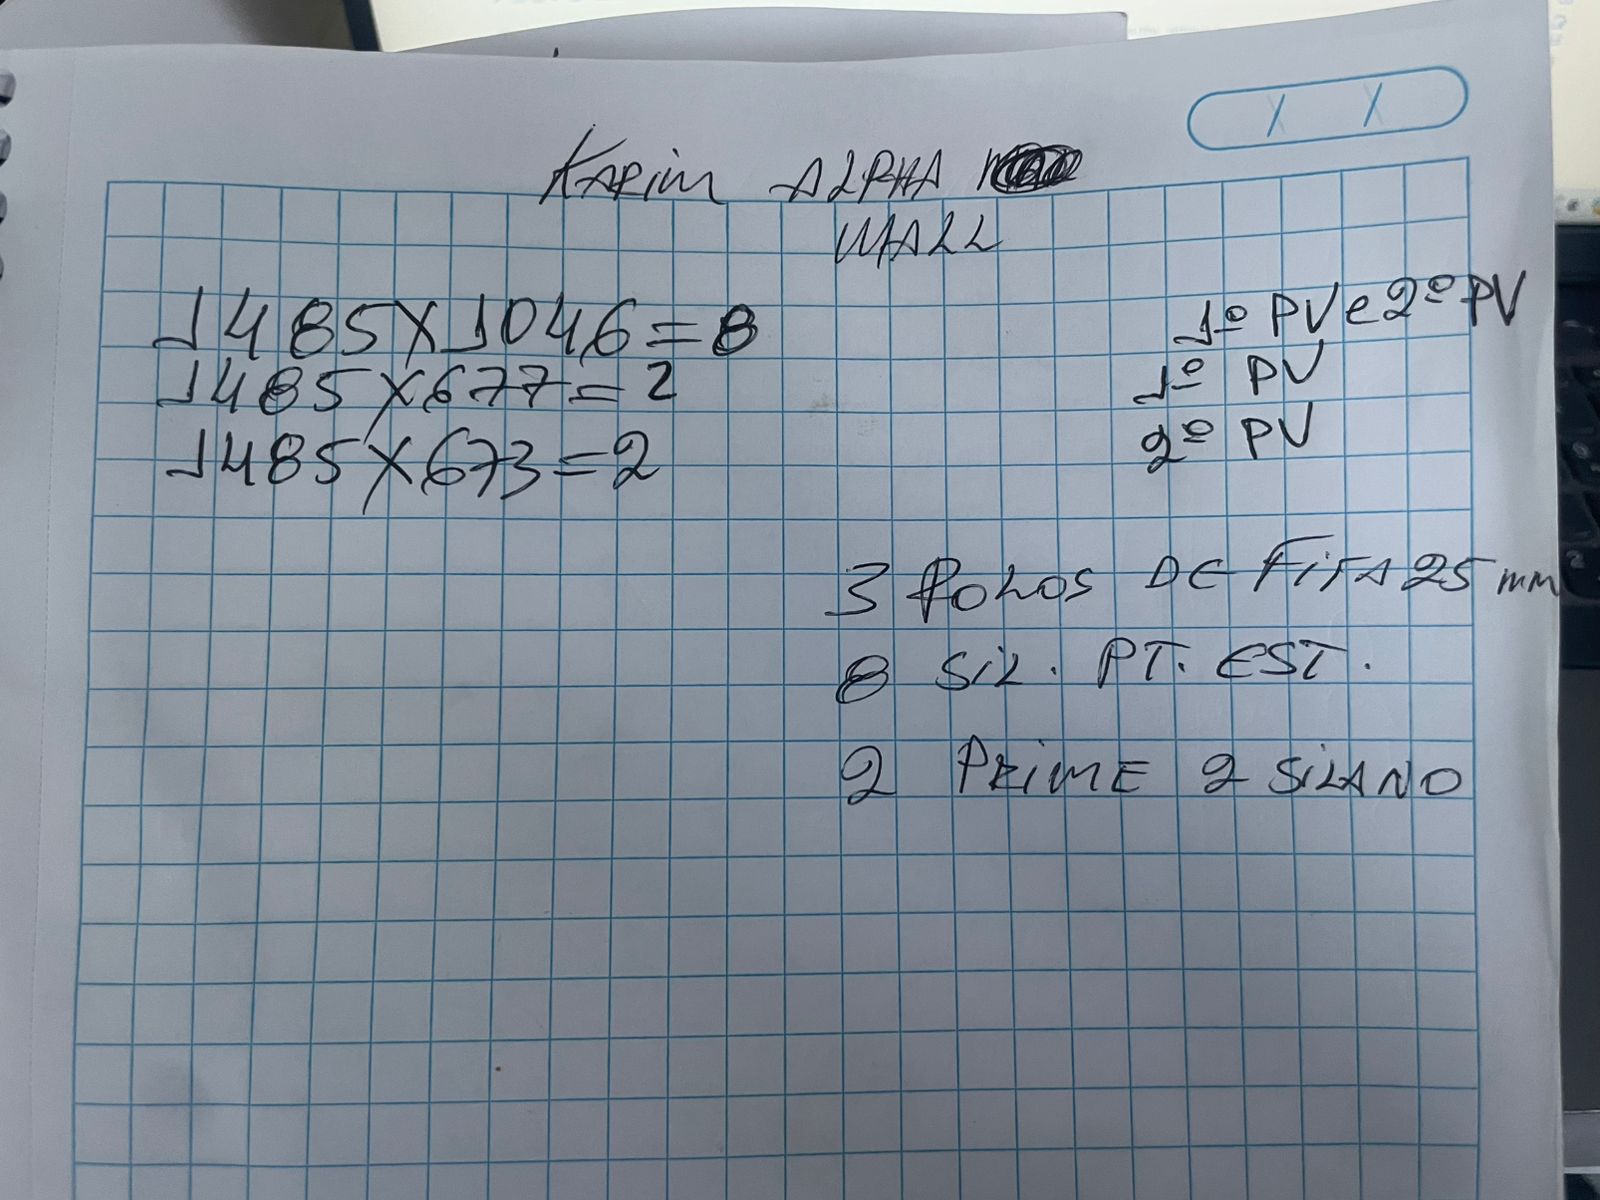 KARIM ALPHA
MALL
1485X1046=8 1º PV e 2º PV
1485X677=2 1º PV
1485X673=2 2º PV
3 ROLOS DE FITA 25 mm
8 SIL. PT. EST.
2 PRIME 2 SILANO